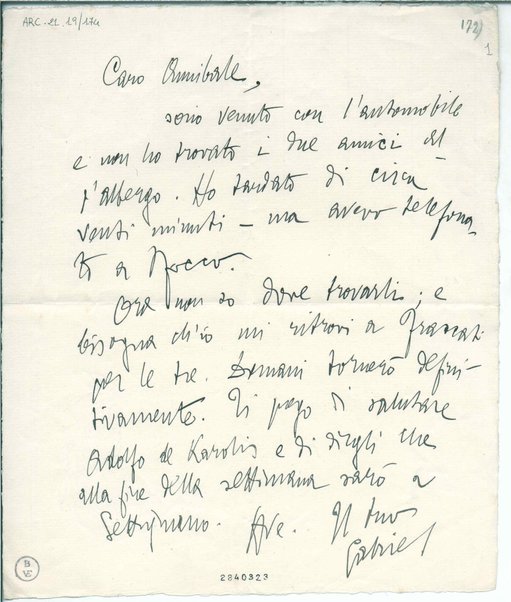 ARC. 21. 19/174
172
1
Caro Annibale,
sono venuto con l'automobile
e non ho trovato i due amici al-
l'albergo. Ho tardato di circa
venti minuti – ma avevo telefona-
to a Rocco.
Ora non so dove trovarti; e
bisogna ch'io mi ritrovi a Frascati
per le tre. Domani tornerò defini-
tivamente. Ti prego di salutare
Adolfo de Karolis e di dirgli che
alla fine della settimana sarò a
Settignano. Ave. Il tuo
Gabriel
B
VE
2840323